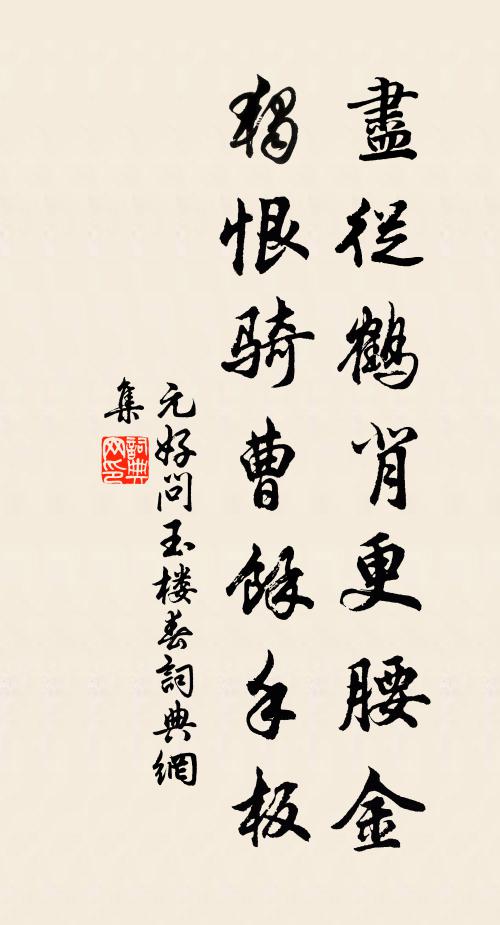 盡從鶴背更腰金
獨恨騎曹餘手板
元好問玉樓春詞典網
集
詞典網印